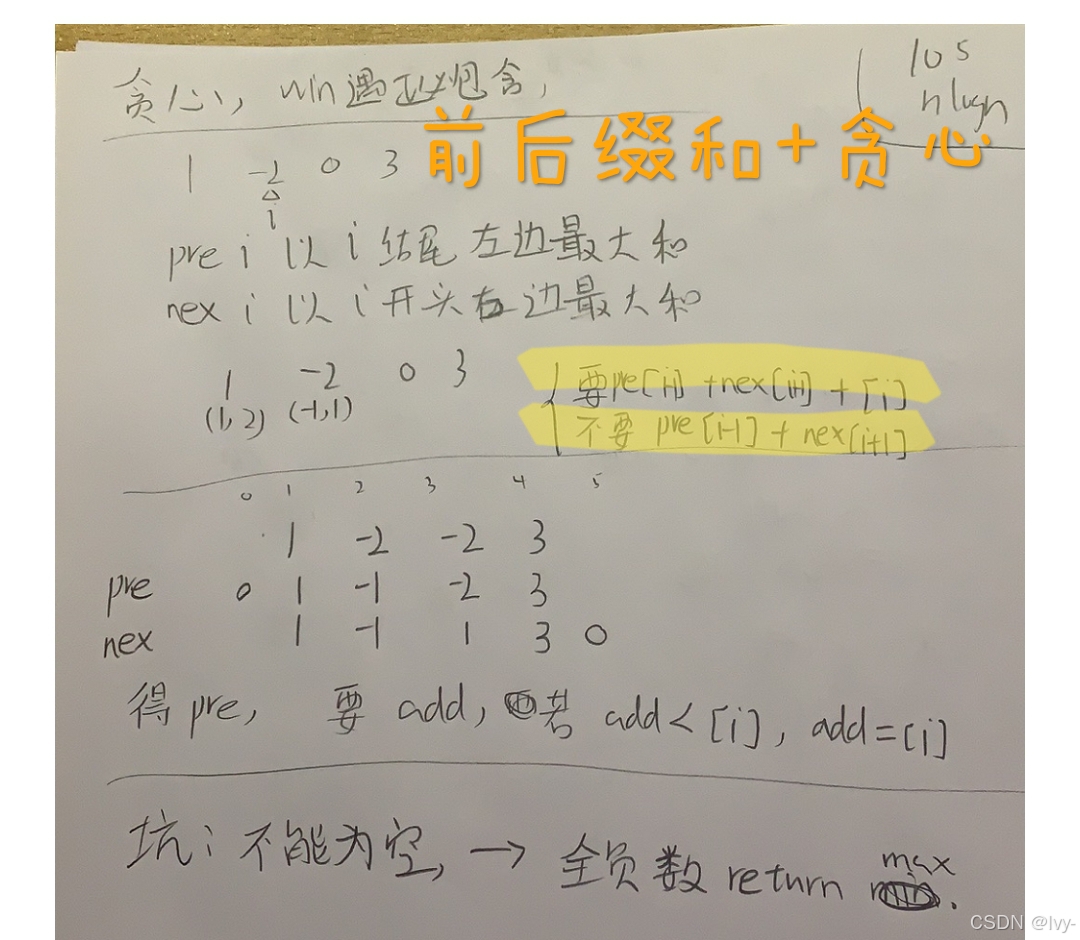 贪心，win遇正必包含，
10^5
nlogn
前后缀和+贪心
1 -2 0 3
i
pre i 以 i 结尾 左边最大和
nex i 以 i 开头 右边最大和
1 -2 0 3
(1,2) (-1,1)
要pre[i-1] +nex[i+1] + [i]
不要 pre[i-1] + nex[i+1]
0 1 2 3 4 5
1 -2 -2 3
pre 0 1 -1 -2 3
nex 1 -1 1 3 0
得 pre, 要 add, 若 add< [i], add=[i]
坑: 不能为空, → 全负数 return max.
CSDN @lvy-